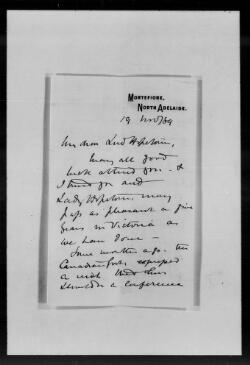 MONTEFIORE,
NORTH ADELAIDE.
19 Nov/89
My dear Lord Hopetoun,
May all good
luck attend you - &
I you and
Lady Hopetoun may
pass as pleasant a five
years in Victoria as
we have done -
Some months ago the
Canadian Govt. expressed
a wish that
should be a conference